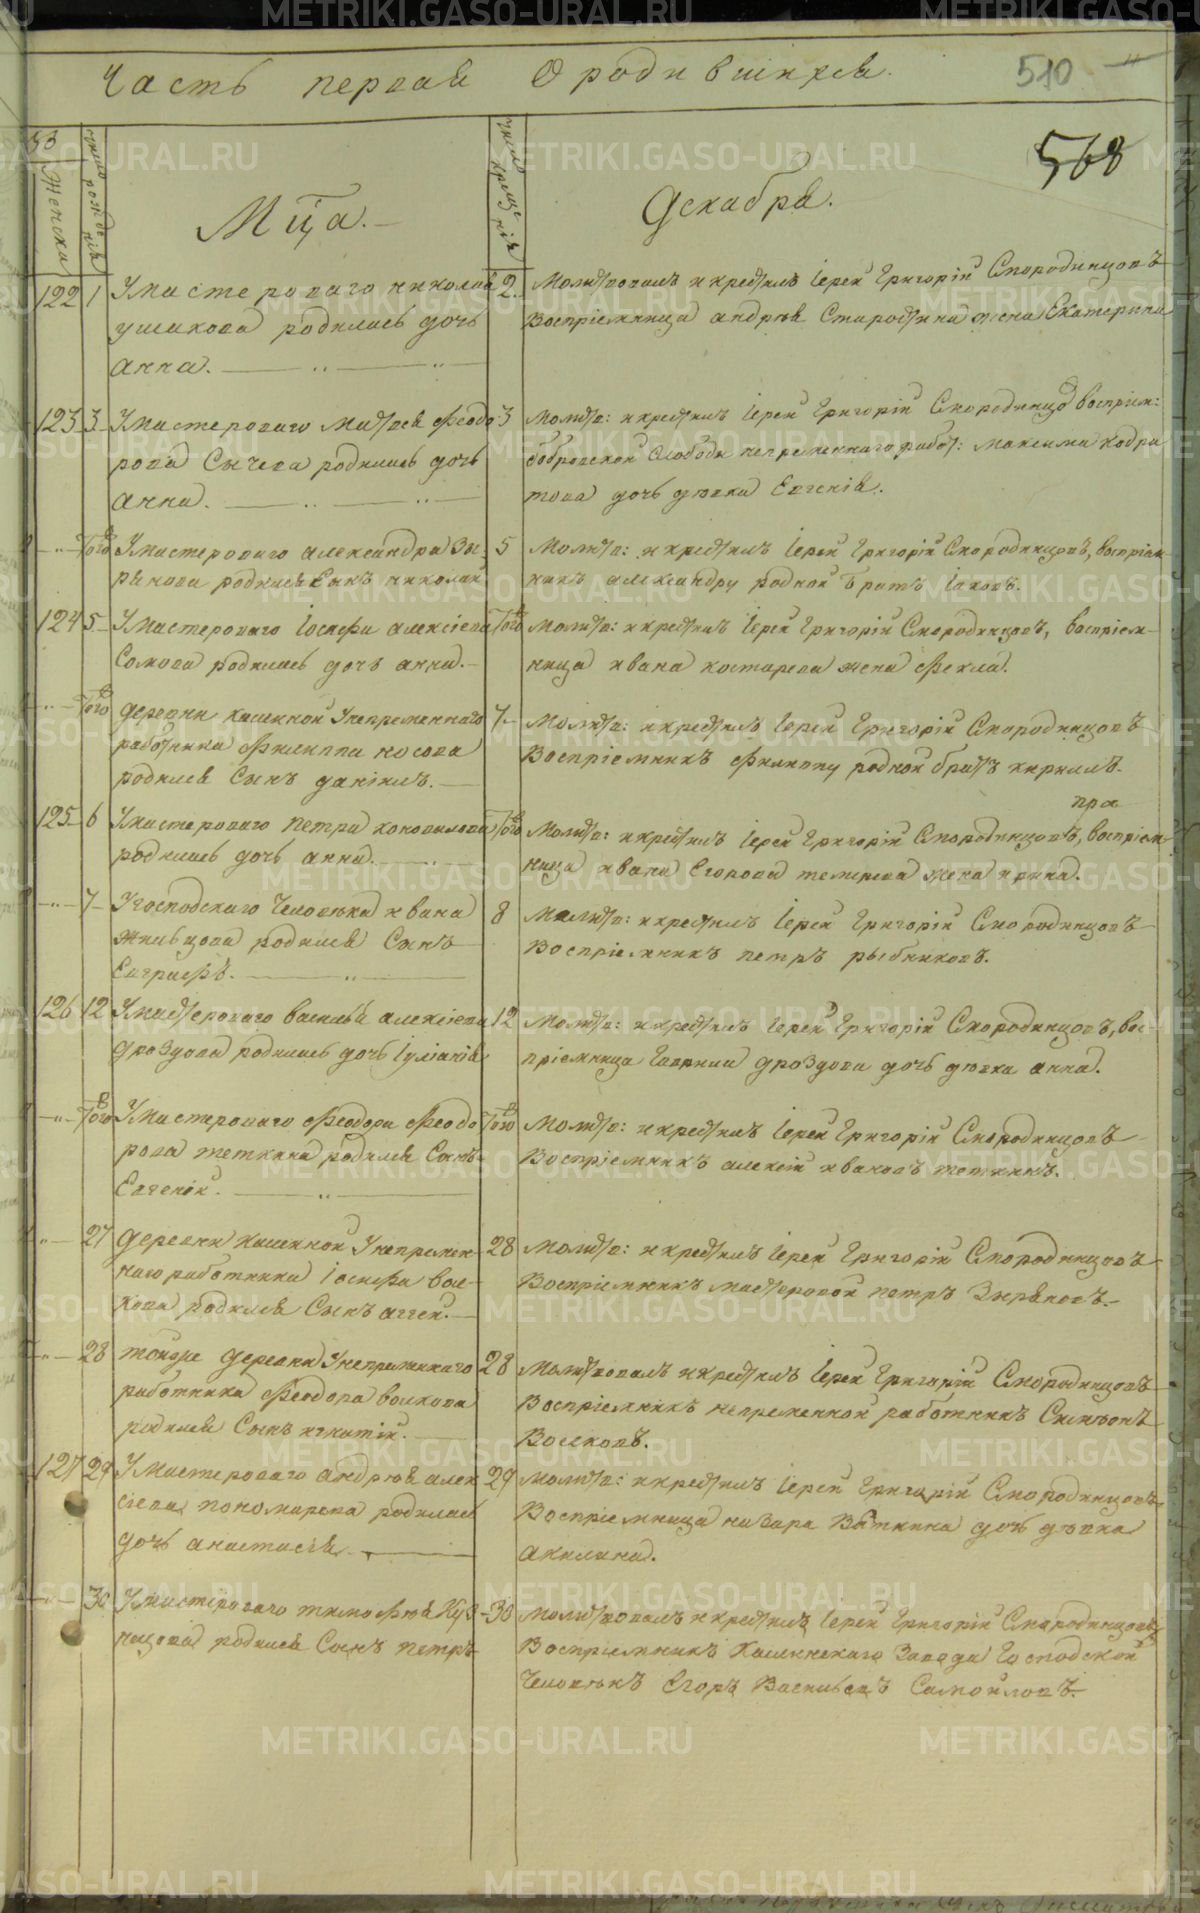 Часть первая О родившихся.
510
568
Женска
число рождения
Мца.
число крещения
Декабря.
122 1 У мастероваго николая
ушакова родилась дочь
анна.
2. Молитвовалъ и крестилъ Іерей Григорій Смородинцовъ
Воспріемница андрея Старостина жена Екатерина
123 3 У мастероваго матвея Феодо
рова Сычева родилась дочь
анна.
3 Молитв: и крестилъ Іерей Григорій Смородинцо воспріем:
бобровской слободы непременнаго работ: максима
дочь девка Евгенія.
Того У мастероваго александра Зы
рянова родился Сынъ николай
5 Молитв: и крестилъ Іерей Григорій Смородинцовъ, воспріем
никъ александру родной братъ Іаковъ.
124 5 У мастероваго Іосифа алексіева
Сомова родилась дочь анна.
Того Молитв: и крестилъ Іерей Григорій Смородинцовъ, воспріем
ница ивана костарева жена Фекла.
Того деревни кашиной У непременнаго
работника Филиппа носова
родился Сынъ даніилъ.
7 Молитв: и крестилъ Іерей Григорій Смородинцовъ
Воспріемникъ Филиппу родной братъ кирилъ.
125 6 У мастероваго петра коновалова
родилась дочь анна.
Того Молитв: и крестилъ Іерей Григорій Смородинцовъ, воспріем
ница ивана Егорова жена ирина.
7 У господскаго Человека ивана
жильцова родился Сынъ
Евграфъ.
8 Молитв: и крестилъ Іерей Григорій Смородинцовъ
Воспріемникъ петръ рыбниковъ.
126 12 У мастероваго василья алексіева
дроздова родилась дочь Іуліанія
12 Молитв: и крестилъ Іерей Григорій Смородинцовъ, вос-
пріемница Гаврила дроздова дочь девка анна.
Того У мастероваго Феодора Феодо
рова теткина родился Сынъ
Евгеній.
Того Молитв: и крестилъ Іерей Григорій Смородинцовъ
Воспріемникъ алексій ивановъ теткинъ.
27 деревни кашиной У непремен-
наго работника Іосифа вол-
кова родился Сынъ аггей.
28 Молитв: и крестилъ Іерей Григорій Смородинцовъ
Воспріемникъ мастеровой петръ Зыряновъ.
28 тойже деревни У непременнаго
работника Феодора волкова
родился Сынъ игнатій.
28 Молитвовалъ и крестилъ Іерей Григорій Смородинцовъ
Воспріемникъ непременной работникъ Симеонъ
Волковъ.
127 29 У мастероваго андрея алек
сіева пономарева родилась
дочь анастасія
29 Молитв: и крестилъ Іерей Григорій Смородинцовъ
Воспріемница назара Вяткина дочь девка
акилина.
30 У мастероваго тимофея Куз-
нецова родился Сынъ петръ
30 Молитвовалъ и крестилъ Іерей Григорій Смородинцовъ
Воспріемникъ Каслинскаго Завода Господской
Человекъ Егоръ Васильевъ Самойловъ.
METRIKI.GASO-URAL.RU